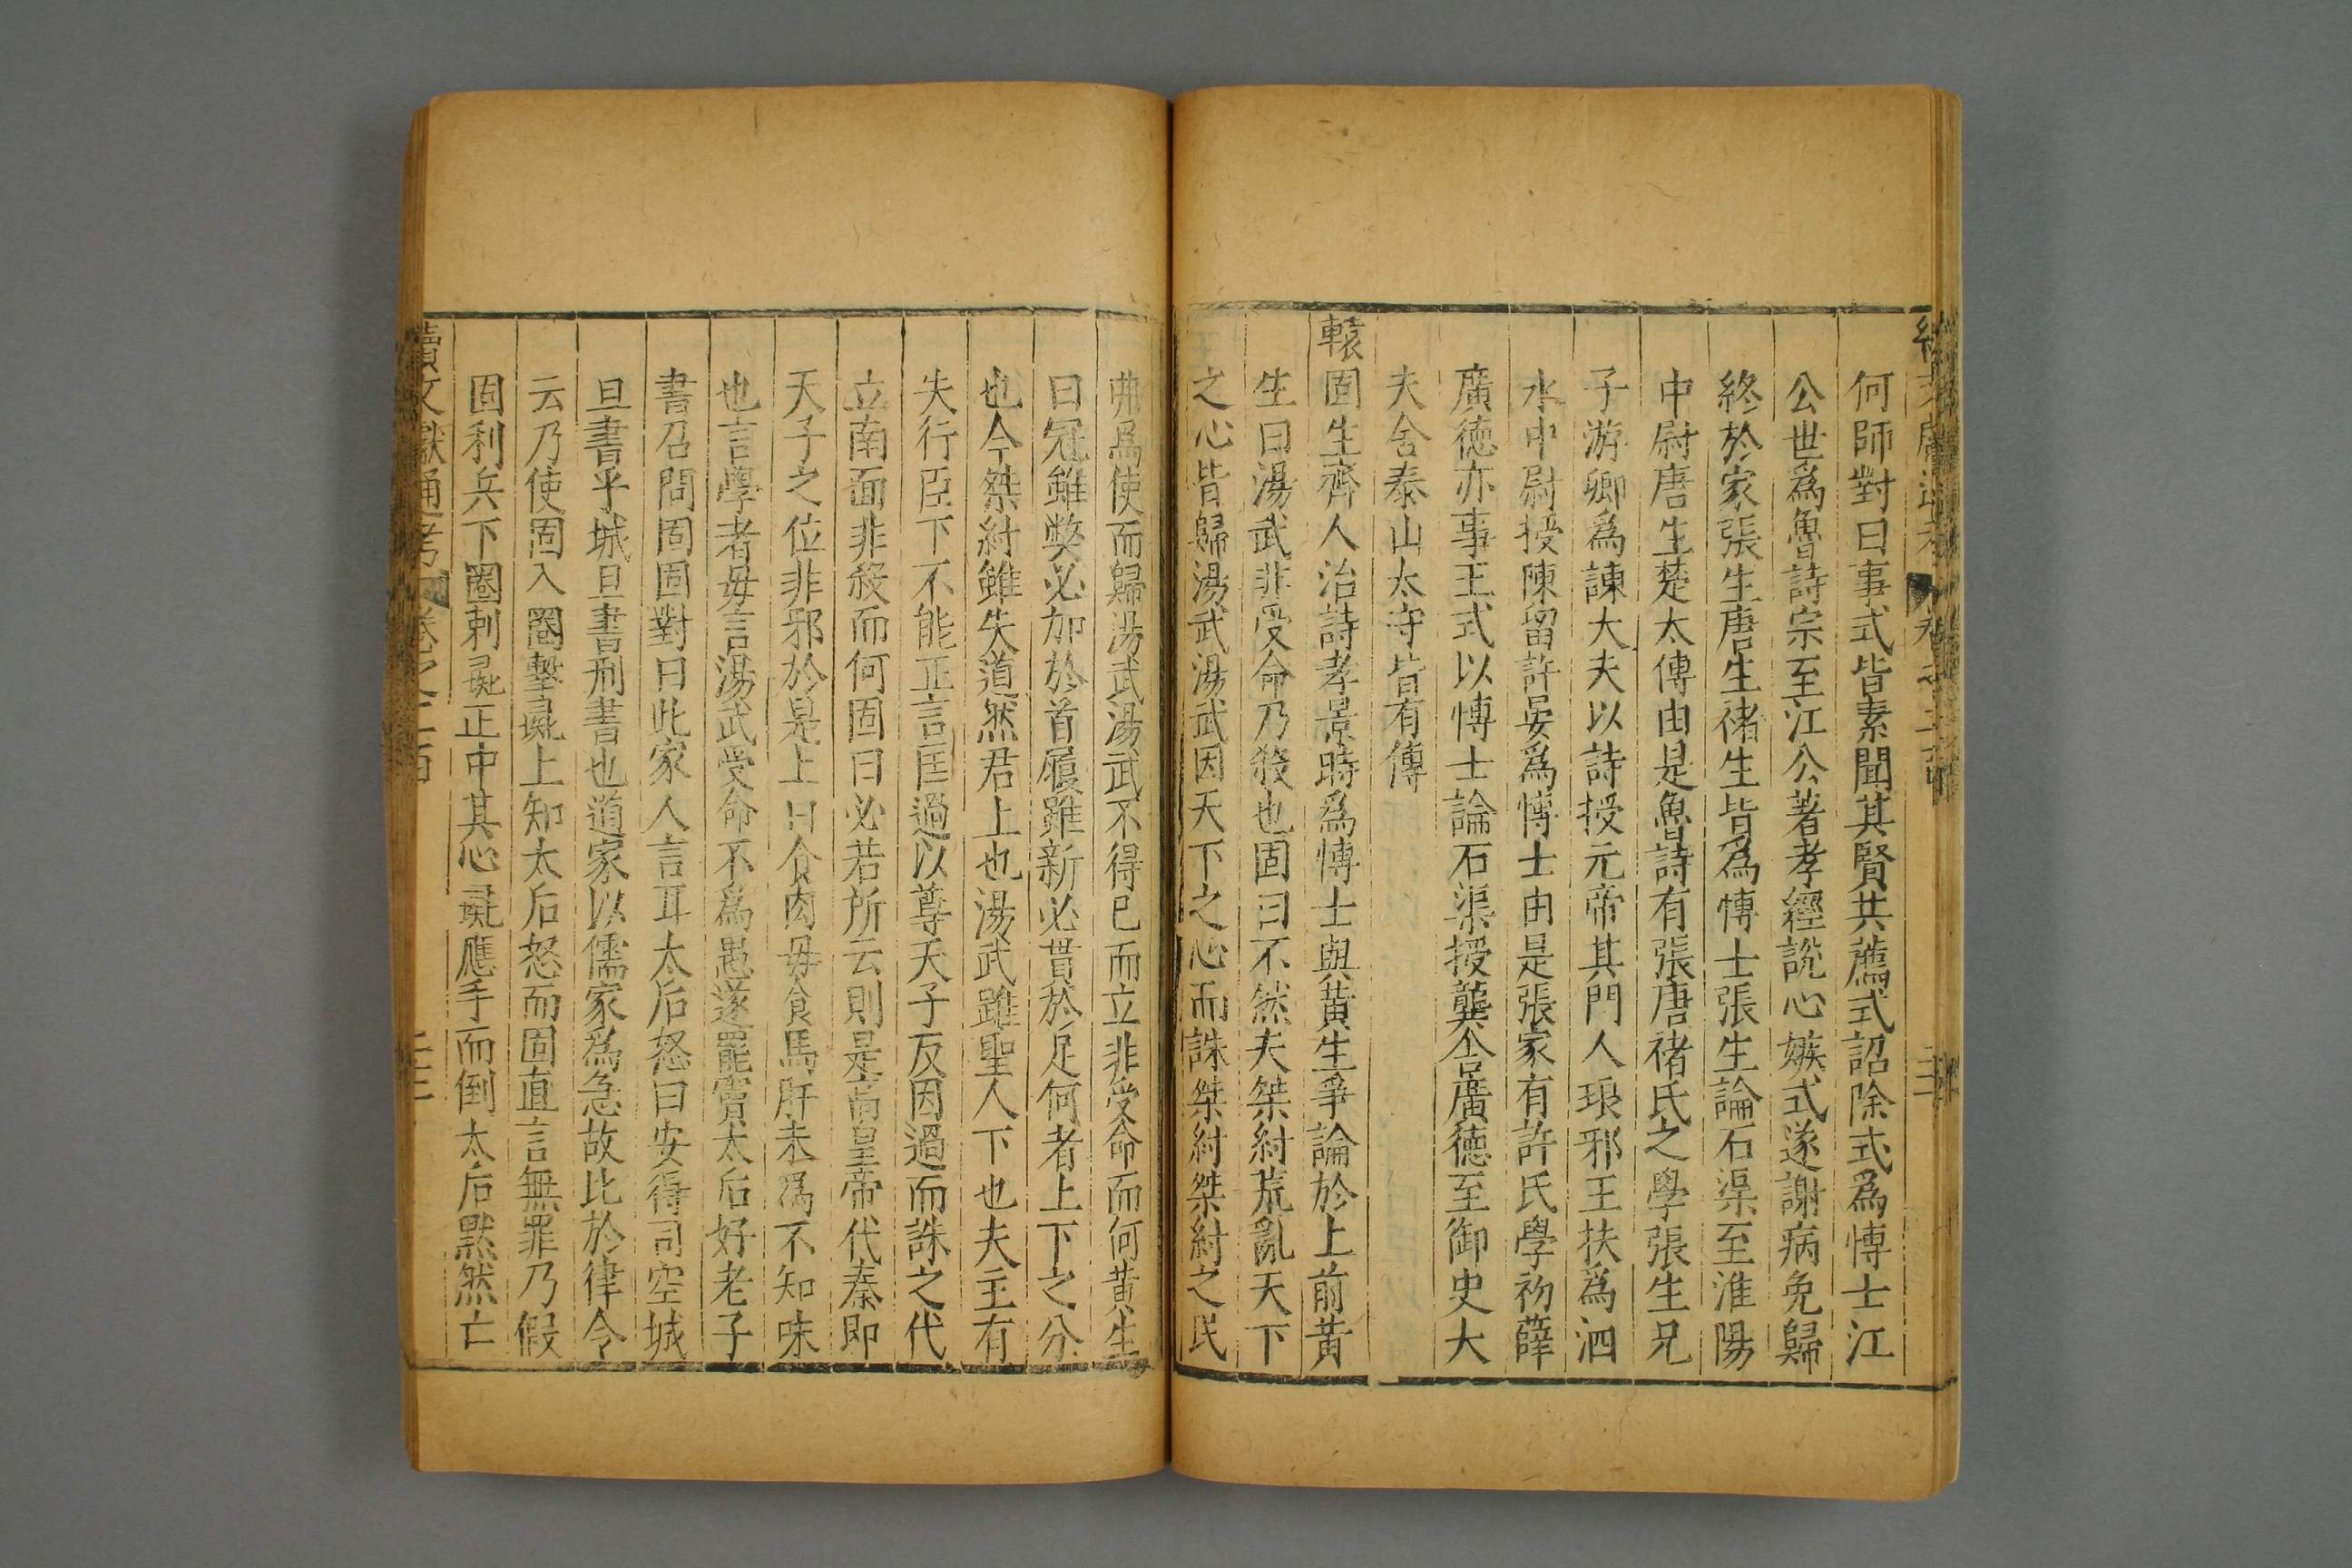 何師對曰事式皆素聞其賢共薦式詔除式為愽士江
公世爲魯詩宗至江公著孝經說心嫉式遂謝病免歸
終於家張生唐生禇生皆爲愽士張生論石渠至淮陽
中尉唐生楚太傅由是魯詩有張唐禇氏之學張生兄
子游卿爲諫大夫以詩授元帝其門人琅邪王扶爲泗
水中尉授陳留許晏爲愽士由是張家有許氏學初薛
廣徳亦事王式以愽士論石渠授龔舍廣徳至御史大
夫舍泰山太守皆有傳
轅固生齊人治詩孝景時爲愽士與黃生爭論於上前黃
生曰湯武非受命乃殺也固曰不然夫桀紂荒亂天下
之心皆歸湯武湯武因天下之心而誅桀紂桀紂之民
弗爲使而歸湯武湯武不得已而立非受命而何黃生
曰冠雖弊必加於首履雖新必貫於足何者上下之分
也今桀紂雖失道然君上也湯武雖聖人下也夫主有
失行臣下不能正言匡過以尊天子反因過而誅之代
立南面非殺而何固曰必若所云則是高皇帝代秦即
天子之位非邪於是上曰食肉毋食馬肝未爲不知味
也言學者毋言湯武受命不爲愚遂罷竇太后好老子
書召問固固對曰此家人言耳太后怒曰安得司空城
旦書乎城旦書刑書也道家以儒家爲急故比於律令
云乃使固入圈擊彘上知太后怒而固直言無罪乃假
固利兵下圈刺彘正中其心彘應手而倒太后黙然亡
續文獻通考 卷之二百